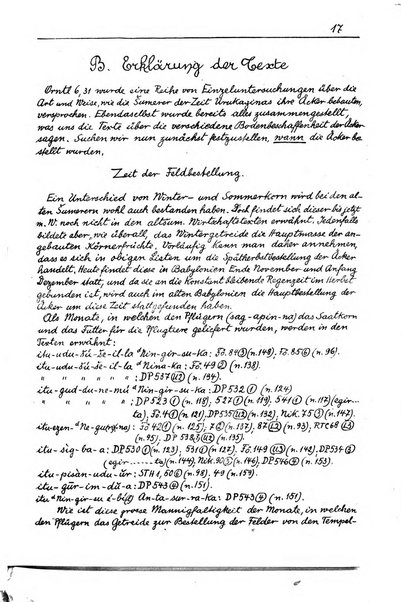 17
B. Erklärung der Texte
Orntl 6, 31 wurde eine Reihe von Einzeluntersuchungen über die
Art und Weise, wie die Sumerer der Zeit Urukaginas ihre Äcker bebauten,
versprochen. Ebendaselbst wurde bereits alles zusammengestellt,
was uns die Texte über die verschiedene Bodenbeschaffenheit der Äcker
sagen. Suchen wir nun zunächst festzustellen, wann die Äcker be-
stellt wurden.
Zeit der Feldbestellung.
Ein Unterschied von Winter- und Sommerkorn wird bei den al-
ten Sumerern wohl auch bestanden haben. Doch findet sich dieser bis jetzt
m. W. noch nicht in den altsum. Wirtschaftstexten erwähnt. Jedenfalls
bildete aber, wie überall, das Wintergetreide die Hauptmasse der an-
gebauten Körnerfrüchte. Vorläufig kann man daher annehmen,
dass es sich in obigen Listen um die Spätherbstbestellung der Äcker
handelt. Heute findet diese in Babylonien Ende November und Anfang
Dezember statt, und da sie an die konstant bleibende Regenzeit im Herbst
gebunden ist, wird auch im alten Babylonien die Hauptbestellung der
Äcker um diese Zeit stattgefunden haben.
Als Monate, in welchen den Pflügern (sag-apin-na) das Saatkorn
und das Futter für die Pflugtiere geliefert wurden, werden in den
Texten erwähnt:
itu-udu-šú-še-il-la ᵈNin-gír-su-ka: Fö. 84③ (n. 149). Fö. 85⑥ (n. 96).
itu-udu-šú-še-il-la ᵈNina-ka: Fö. 49② (n. 138).
" " " " " : DP 537⑪② (n. 134).
itu-gud-du-ne-mú ᵈNin-gír-su-ka: DP 532① (n. 124)
" " " " " : DP 523① (n. 118), 527① (n. 119), 541① (n. 117) (egir-
ta), Fö. 4① (n. 121), DP 535⑪② (n. 132), Nik. 75③ (n. 147).
itu-ezen-ᵈNe-gu(g)na: Fö. 42① (n. 125), 72① (n. 137), 87⑫ (n. 93), RTC 68⑬
(n. 95), DP 538⑪② (n. 135).
itu-sig-ba-a: DP 530① (n. 123), 531① (n. 127), Fö. 149⑪③ (n. 142), DP 534②
(egir ..... ta) (n. 144), Nik. 90⑤ (n. 146), DP 546④ (n. 153).
itu-pisàn-udu-úr: STH 1, 50⑥ (n. 98). 49 (n. 159).
itu-gur-im-dù-a: DP 543④ (n. 151).
itu ᵈNin-gír-su é-bil An-ta-sur-ra-ka: DP 543④ (n. 151).
Wie ist diese grosse Mannigfaltigkeit der Monate, in welchen
den Pflügern das Getreide zur Bestellung der Felder von den Tempel-